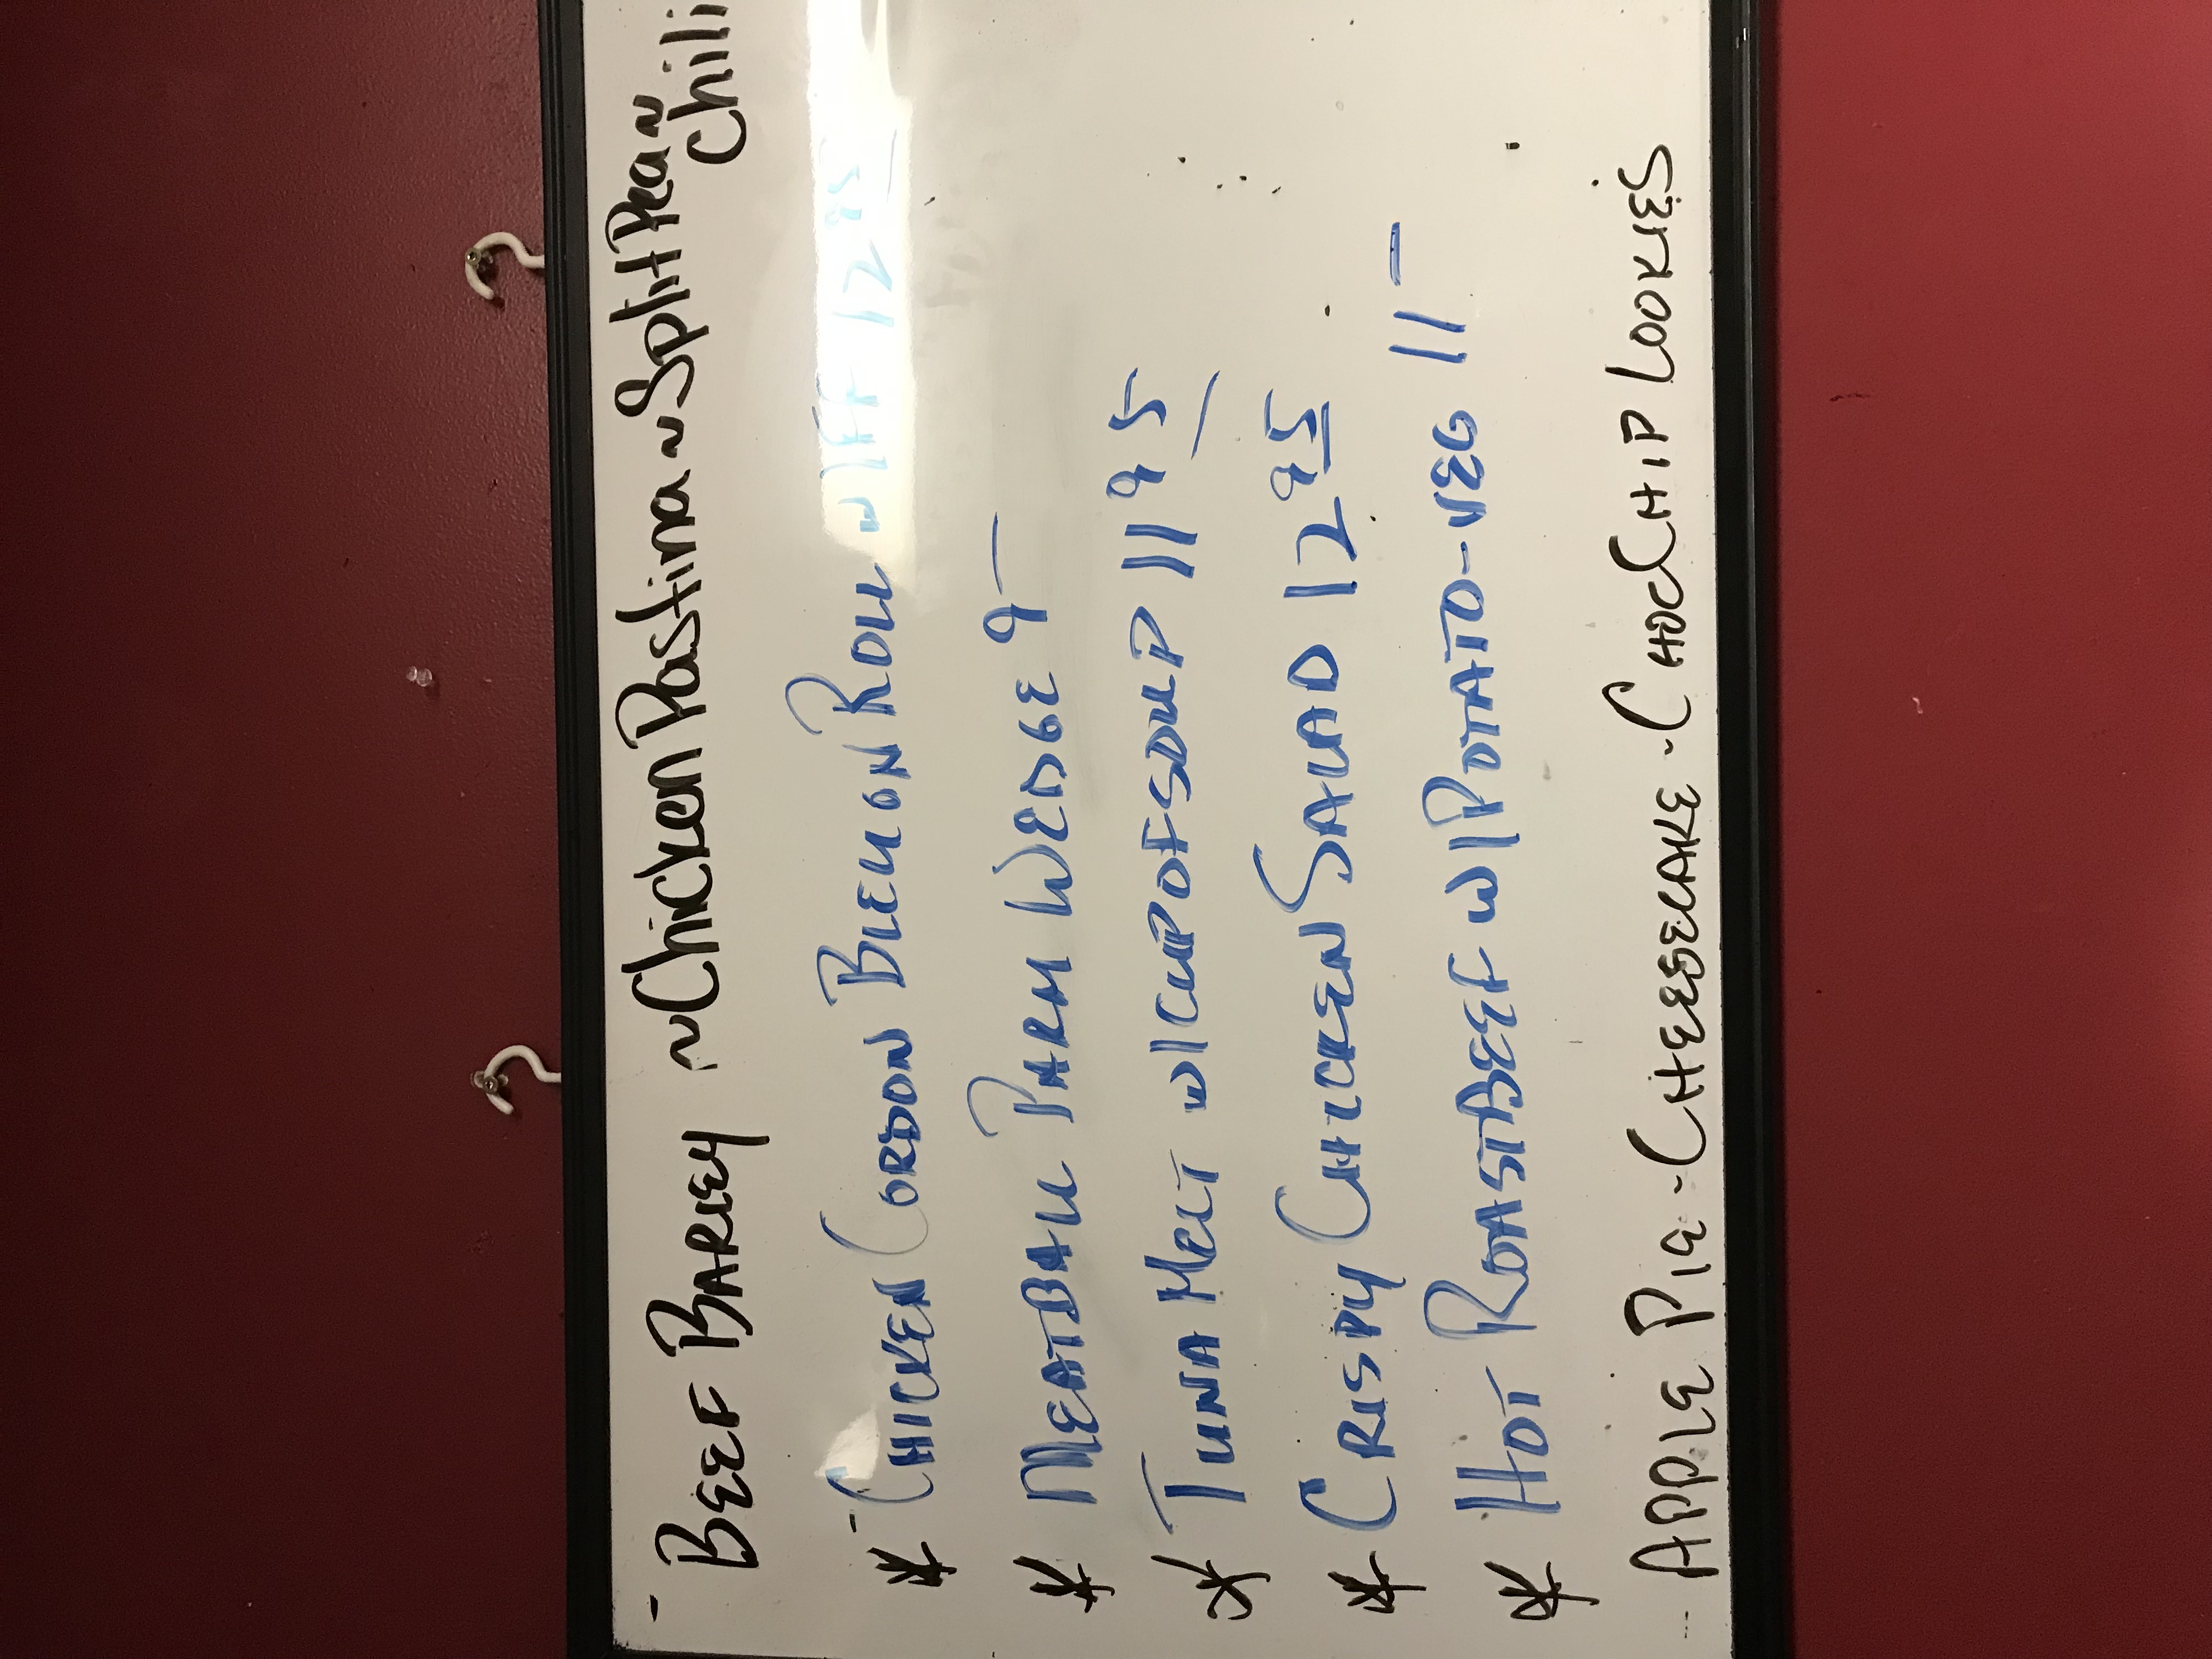 - BEEF BARLEY ~ Chicken Pastina ~ Split Pea ~
Chili
* CHICKEN CORDON BLEU ON ROLL w/FF 12 95
* MEATBALL PARM WEDGE 9 -
* TUNA MELT w/CUP OF SOUP 11 95
* CRISPY CHICKEN SALAD 12 95
* HOT ROAST BEEF w/POTATO-VEG 11 -
APPLE PIE - CHEESECAKE - CHOC CHIP COOKIES